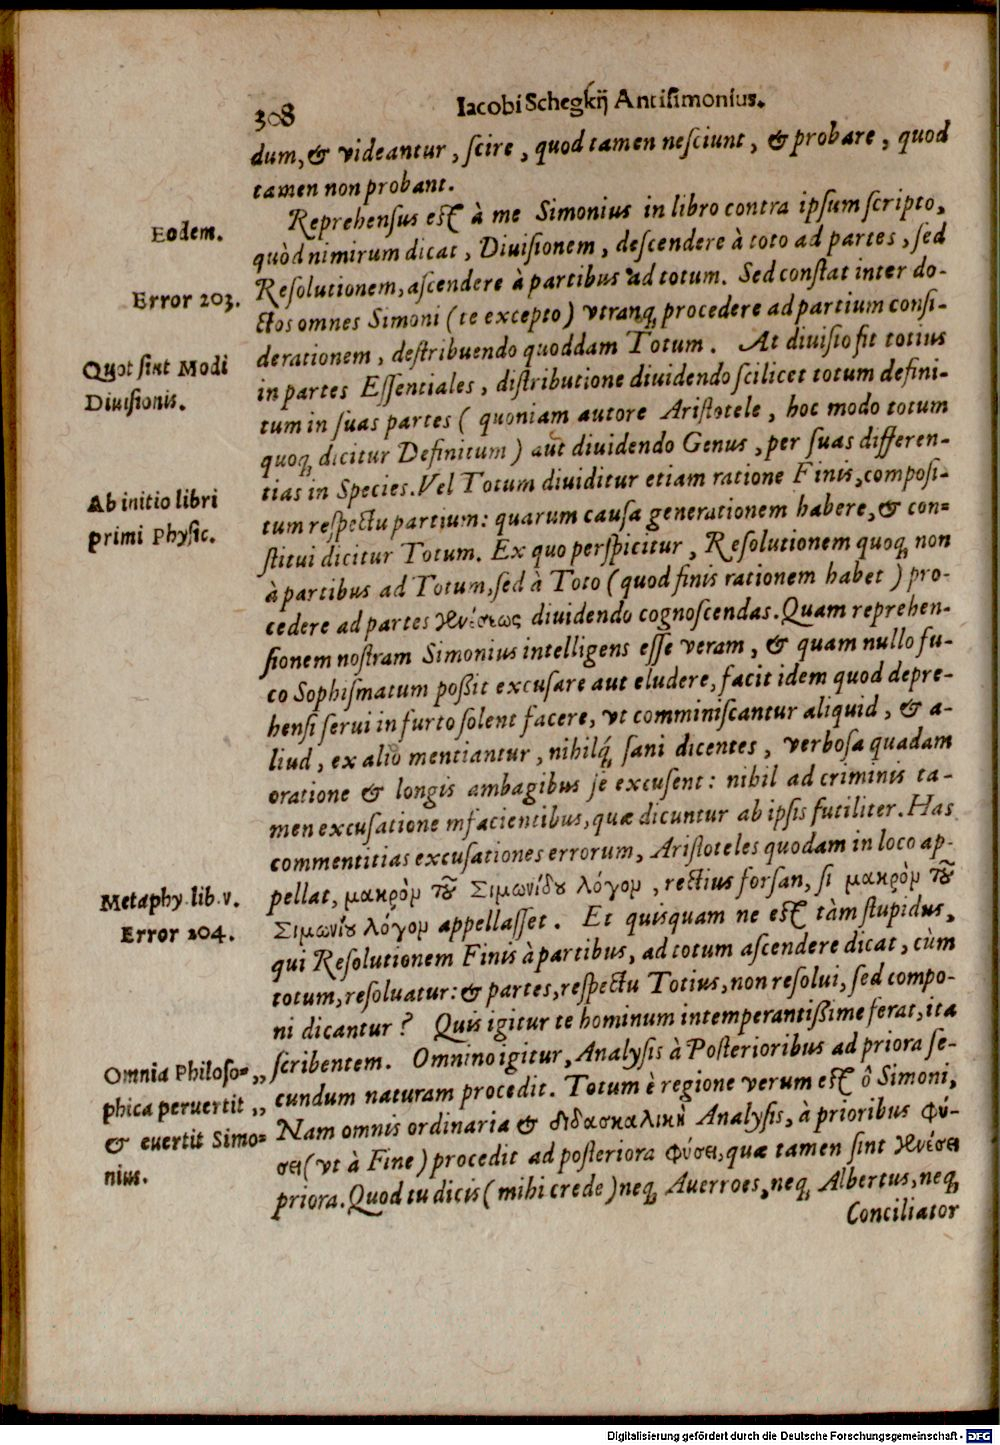 308
Iacobi Schegkij Antisimonius.
dum, & videantur, scire, quod tamen nesciunt, & probare, quod
tamen non probant.
Eodem.
Reprehensus est à me Simonius in libro contra ipsum scripto,
quòd nimirum dicat, Diuisionem, descendere à toto ad partes, sed
Error 203.
Resolutionem, ascendere à partibus ad totum. Sed constat inter do-
ctos omnes Simoni (te excepto) vtranq; procedere ad partium consi-
derationem, destribuendo quoddam Totum. At diuisio fit totius
Quot sint Modi
Diuisionis.
in partes Essentiales, distributione diuidendo scilicet totum defini-
tum in suas partes ( quoniam autore Aristotele, hoc modo totum
quoq; dicitur Definitum ) aut diuidendo Genus, per suas differen-
tias in Species. Vel Totum diuiditur etiam ratione Finis, composi-
Ab initio libri
primi Physic.
tum respectu partium: quarum causa generationem habere, & con=
stitui dicitur Totum. Ex quo perspicitur, Resolutionem quoq; non
à partibus ad Totum, sed à Toto (quod finis rationem habet ) pro-
cedere ad partes γενέσεως diuidendo cognoscendas. Quam reprehen-
sionem nostram Simonius intelligens esse veram, & quam nullo fu-
co Sophismatum poßit excusare aut eludere, facit idem quod depre-
hensi serui in furto solent facere, vt comminiscantur aliquid, & a-
liud, ex alio mentiantur, nihilq́; sani dicentes, verbosa quadam
oratione & longis ambagibus se excusent: nihil ad criminis ta-
men excusatione mfacientibus, quæ dicuntur ab ipsis futiliter. Has
commentitias excusationes errorum, Aristoteles quodam in loco ap-
Metaphy. lib. v.
pellat, μακρὸν τοῦ Σιμωνίδου λόγον, rectius forsan, si μακρὸν τοῦ
Error 204.
Σιμωνίου λόγον appellasset. Et quisquam ne est tàm stupidus,
qui Resolutionem Finis à partibus, ad totum ascendere dicat, cùm
totum, resoluatur: & partes, respectu Totius, non resolui, sed compo-
ni dicantur? Quis igitur te hominum intemperantißime ferat, ita
scribentem. Omnino igitur, Analysis à Posterioribus ad priora se-
Omnia Philoso= „
phica peruertit „
& euertit Simo=
nius.
cundum naturam procedit. Totum è regione verum est ô Simoni,
Nam omnis ordinaria & διδασκαλικὴ Analysis, à prioribus φύ-
σει (vt à Fine) procedit ad posteriora φύσει, quæ tamen sint γενέσει
priora. Quod tu dicis (mihi crede) neq; Auerroes, neq; Albertus, neq;
Conciliator
Digitalisierung gefördert durch die Deutsche Forschungsgemeinschaft - DFG